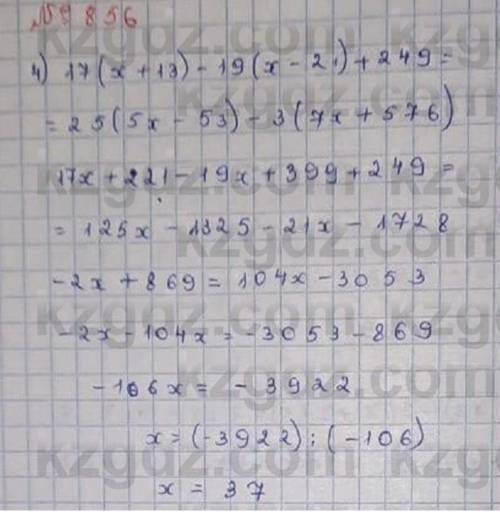 №9 856
4) 17(x+13)-19(x-21)+249=
=25(5x-53)-3(7x+576)
17x+221-19x+399+249=
=125x-1325-21x-1728
-2x+869=104x-3053
-2x-104x=-3053-869
-106x=-3922
x=(-3922):(-106)
x=37
kzgdz.com